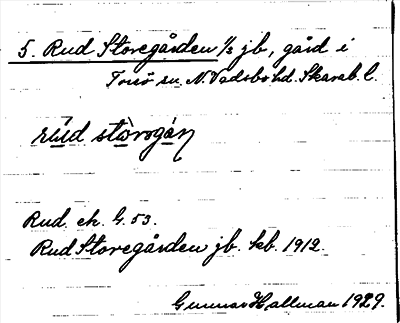 5. Rud Storegården 1/2 jb, gård i
Torsö sn. N. Vadsbo hd. Skarab. l.
rúd stòrəgán
Rud. ek. 4. 53.
Rud Storegården jb. kb. 1912.
Gunnar Hallman 1929.